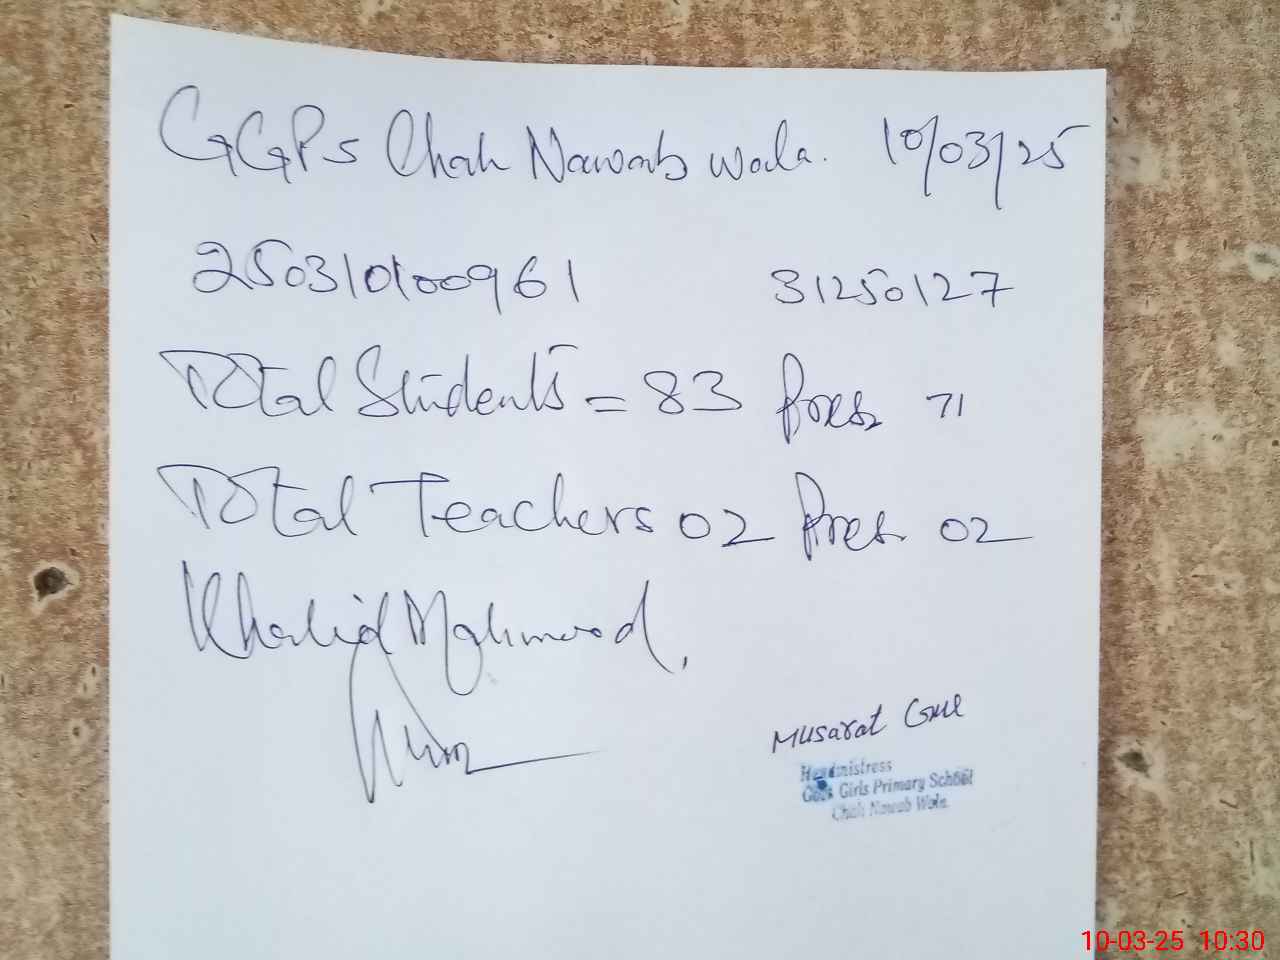 GGPS Chah Nawab Wala. 10/03/25
250310100961 31250127
Total Students = 83 Pres. 71
Total Teachers 02 Pres. 02
Khalid Mahmood,
Musarat Gul
Headmistress
Govt. Girls Primary School
Chah Nawab Wala
10-03-25 10:30